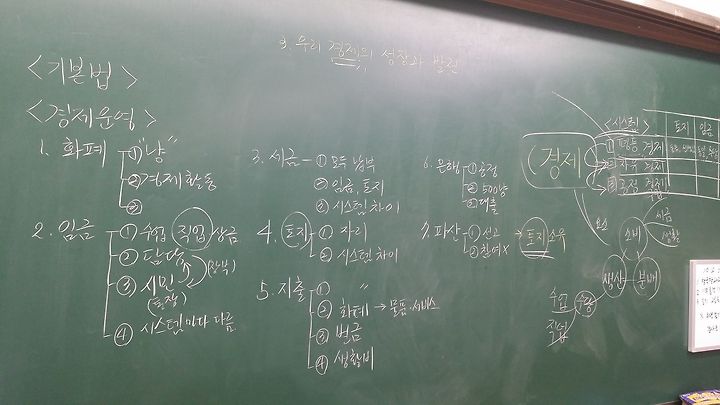 3. 우리 경제의 성장과 발전
<기본법>
<경제운영>
1. 화폐
① "냥"
② 경제활동
③
2. 임금
① 수업 직업 상금
② 담당
③ 시민
④ 시스템마다 다름
3. 세금
① 모두 납부
② 임금, 토지
③ 시스템 차이
4. 토지
① 자리
② 시스템 차이
5. 지출
① "
② 화폐 → 물품·서비스
③ 벌금
④ 생활비
6. 은행
① 공정
② 500냥
③ 대출
7. 파산
① 선고
② 참여X
→ 토지 소유
(경제)
<시스템>
토지 임금
① 평등 경제
② 자유 경제
③ 공정 경제
요소
소비
세금
생활
생산 분배
수입
직업